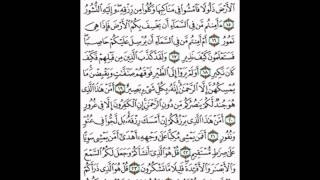 ٱلْأَرْضَ ذَلُولًا فَٱمْشُوا۟ فِى مَنَاكِبِهَا وَكُلُوا۟ مِن رِّزْقِهِۦ وَإِلَيْهِ ٱلنُّشُورُ
١٥ ءَأَمِنتُم مَّن فِى ٱلسَّمَآءِ أَن يَخْسِفَ بِكُمُ ٱلْأَرْضَ فَإِذَا هِىَ
تَمُورُ ١٦ أَمْ أَمِنتُم مَّن فِى ٱلسَّمَآءِ أَن يُرْسِلَ عَلَيْكُمْ حَاصِبًا
فَسَتَعْلَمُونَ كَيْفَ نَذِيرِ ١٧ وَلَقَدْ كَذَّبَ ٱلَّذِينَ مِن قَبْلِهِمْ فَكَيْفَ
كَانَ نَكِيرِ ١٨ أَوَلَمْ يَرَوْا۟ إِلَى ٱلطَّيْرِ فَوْقَهُمْ صَٰٓفَّٰتٍ وَيَقْبِضْنَ مَا
يُمْسِكُهُنَّ إِلَّا ٱلرَّحْمَٰنُ إِنَّهُۥ بِكُلِّ شَىْءٍۭ بَصِيرٌ ١٩ أَمَّنْ هَٰذَا ٱلَّذِى
هُوَ جُندٌ لَّكُمْ يَنصُرُكُم مِّن دُونِ ٱلرَّحْمَٰنِ إِنِ ٱلْكَٰفِرُونَ إِلَّا فِى غُرُورٍ
٢٠ أَمَّنْ هَٰذَا ٱلَّذِى يَرْزُقُكُمْ إِنْ أَمْسَكَ رِزْقَهُۥ بَل لَّجُّوا۟ فِى عُتُوٍّ
وَنُفُورٍ ٢١ أَفَمَن يَمْشِى مُكِبًّا عَلَىٰ وَجْهِهِۦٓ أَهْدَىٰٓ أَمَّن يَمْشِى سَوِيًّا
عَلَىٰ صِرَٰطٍ مُّسْتَقِيمٍ ٢٢ قُلْ هُوَ ٱلَّذِىٓ أَنشَأَكُمْ وَجَعَلَ لَكُمُ ٱلسَّمْعَ
وَٱلْأَبْصَٰرَ وَٱلْأَفْـِٔدَةَ قَلِيلًا مَّا تَشْكُرُونَ ٢٣ قُلْ هُوَ ٱلَّذِى ذَرَأَكُمْ